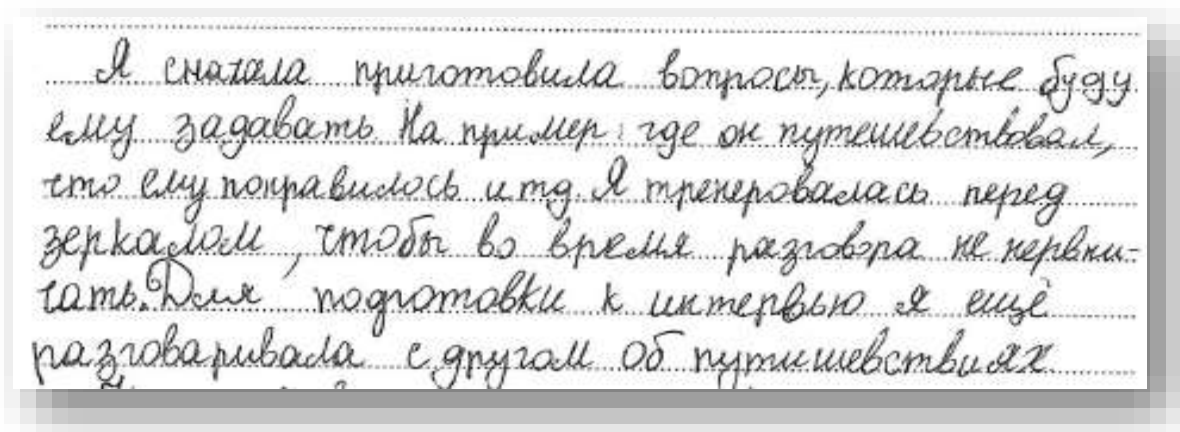 Я сначала приготовила вопросы, которые буду
ему задавать. На пример: где он путешевствовал,
что ему понравилось и тд. Я тренеровалась перед
зеркалом, чтобы во время разговора не нервни-
чать. Для подготовки к интервью я ещё
разговаривала с другом об путишевствиях.